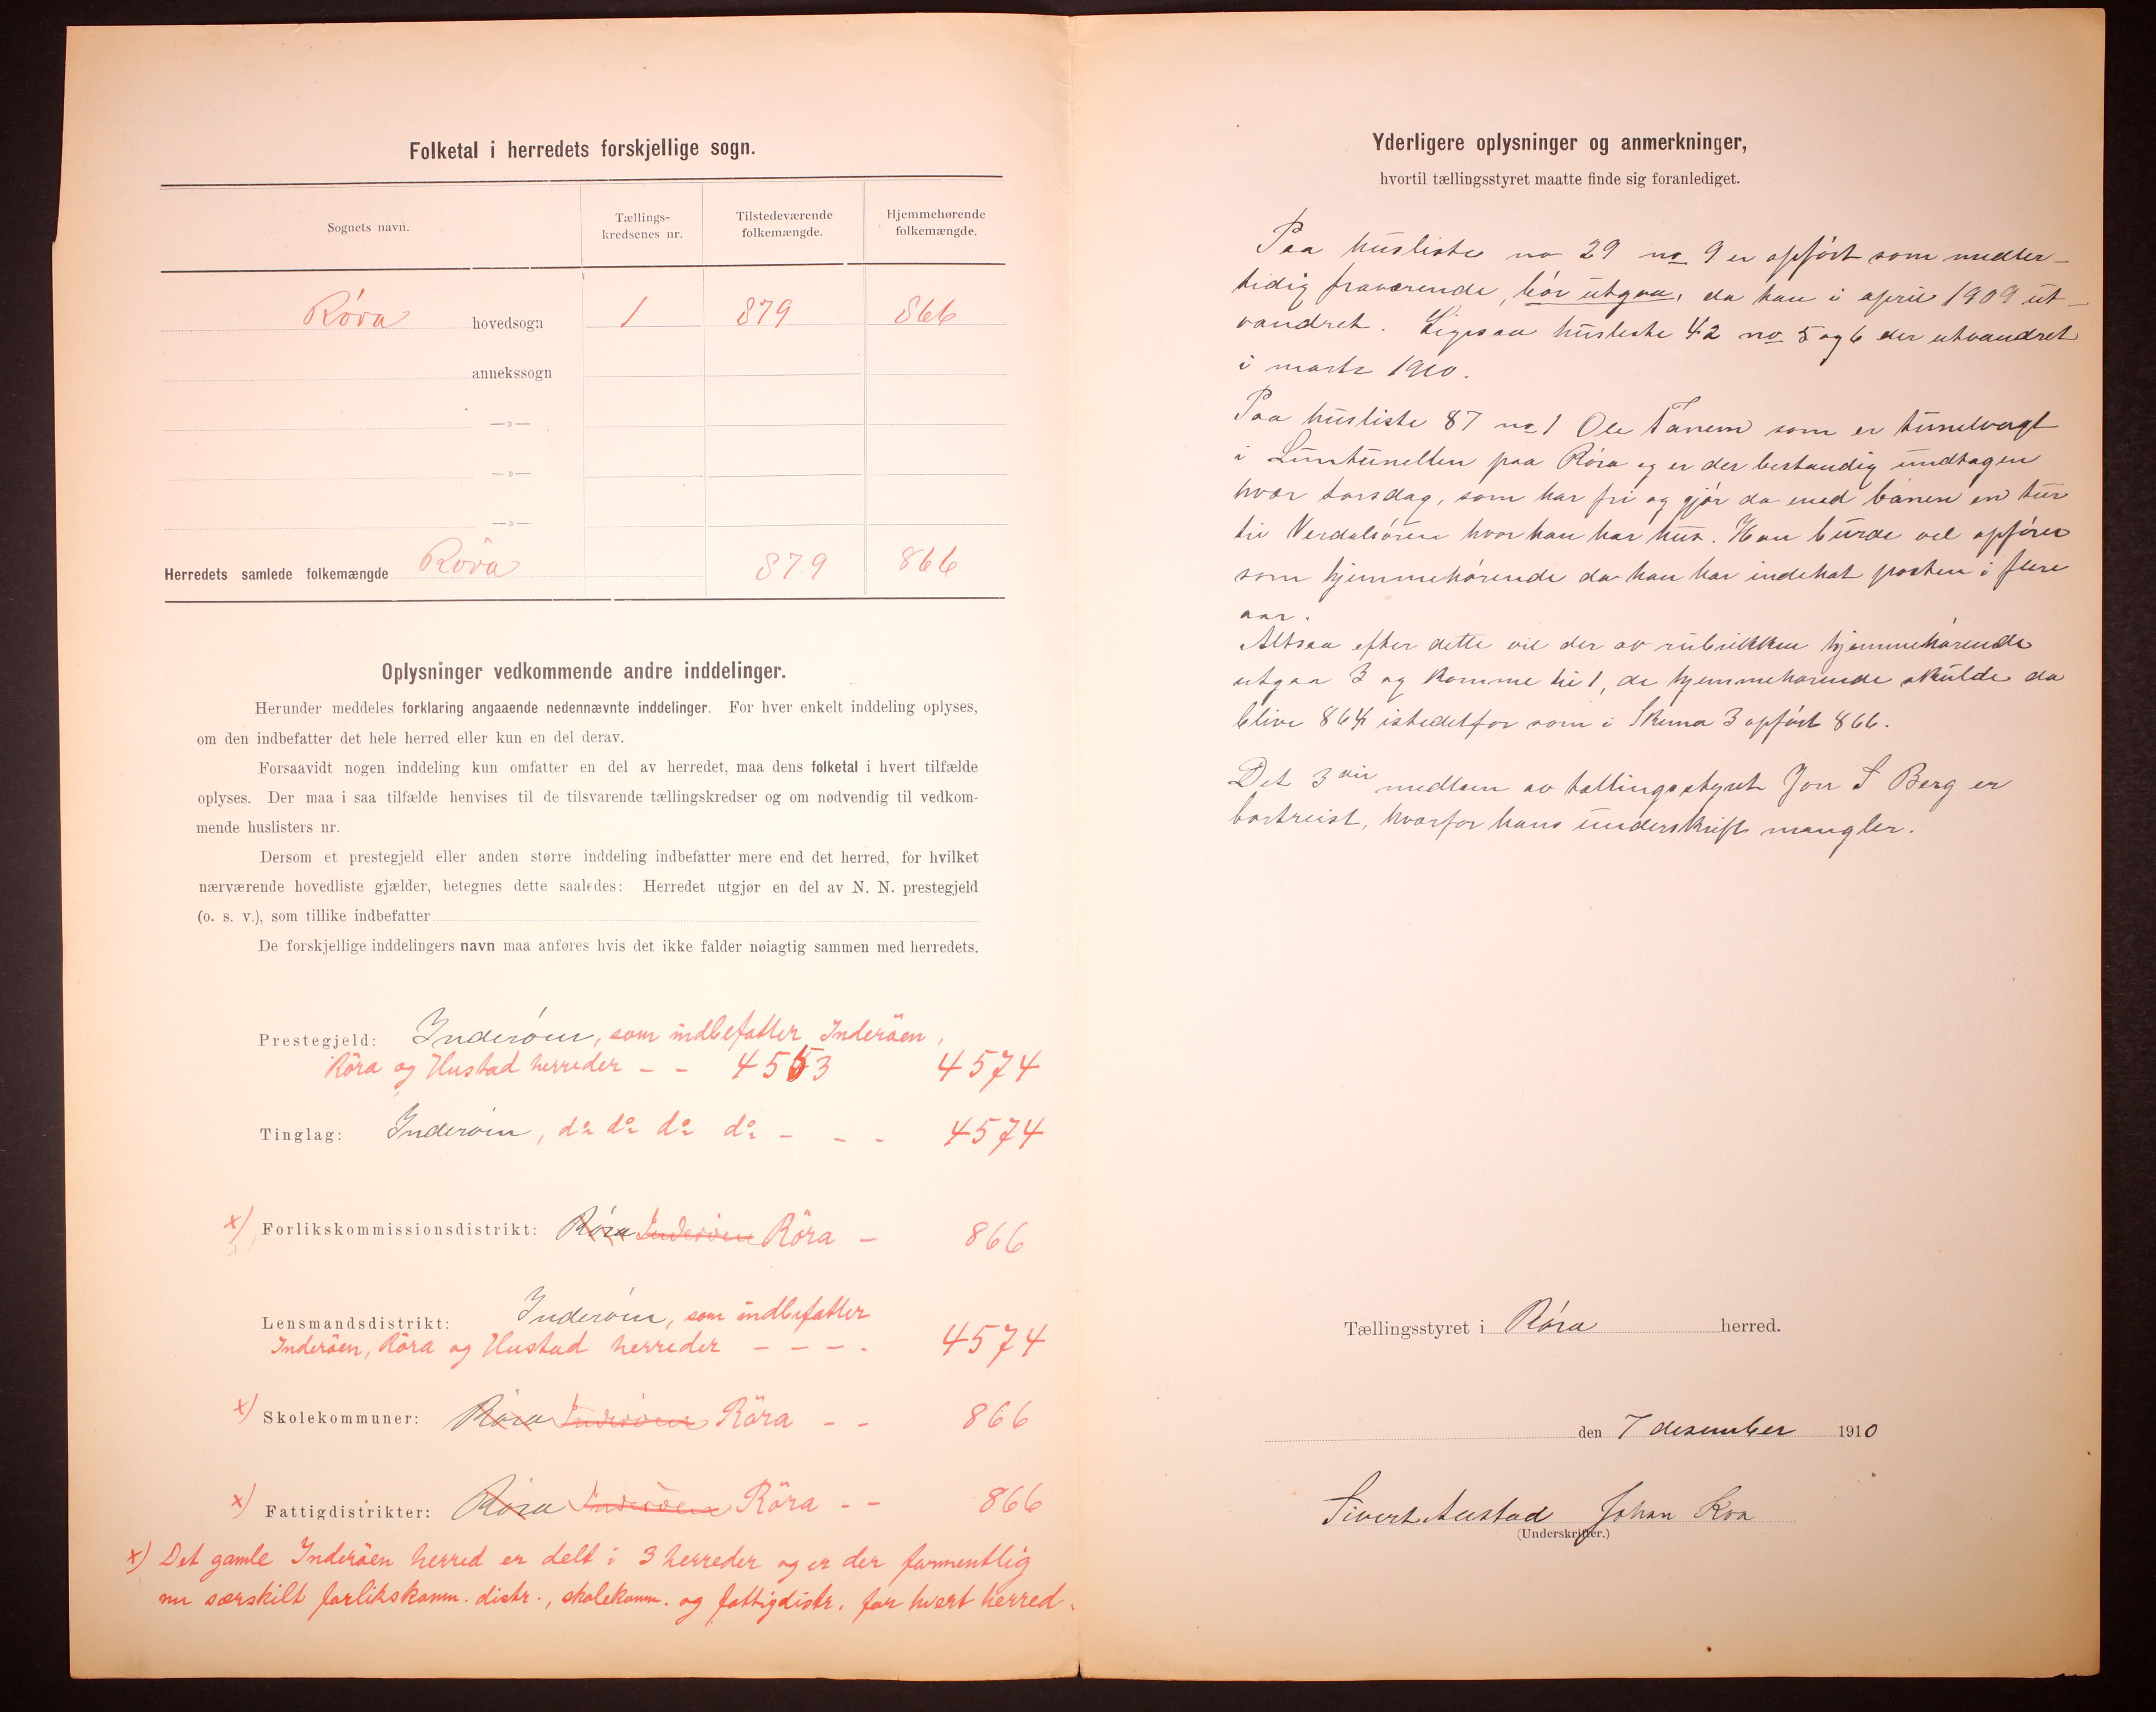 Folketal i herredets forskjellige sogn.
Sognets navn.
Tællings-
kredsenes nr.
Tilstedeværende
folkemængde.
Hjemmehørende
folkemængde.
Røra hovedsogn 1 879 866
annekssogn
—»—
—»—
—»—
Herredets samlede folkemængde Røra 879 866
Oplysninger vedkommende andre inddelinger.
Herunder meddeles forklaring angaaende nedennævnte inddelinger. For hver enkelt inddeling oplyses,
om den indbefatter det hele herred eller kun en del derav.
Forsaavidt nogen inddeling kun omfatter en del av herredet, maa dens folketal i hvert tilfælde
oplyses. Der maa i saa tilfælde henvises til de tilsvarende tællingskredser og om nødvendig til vedkom-
mende huslisters nr.
Dersom et prestegjeld eller anden større inddeling indbefatter mere end det herred, for hvilket
nærværende hovedliste gjælder, betegnes dette saaledes: Herredet utgjør en del av N. N. prestegjeld
(o. s. v.), som tillike indbefatter
De forskjellige inddelingers navn maa anføres hvis det ikke falder nøiagtig sammen med herredets.
Prestegjeld: Inderøen, som indbefatter Inderöen,
Röra og Hustad herreder - - 4553 4574
Tinglag: Inderøen, do do do do - - - 4574
x) Forlikskommissionsdistrikt: Røra Inderöen Röra - 866
Lensmandsdistrikt: Inderøen, som indbefatter
Inderöen, Röra og Hustad herreder - - - - 4574
x) Skolekommuner: Røra Inderöen Röra - - 866
x) Fattigdistrikter: Røra Inderöen Röra - - 866
x) Det gamle Inderöen herred er delt i 3 herreder og er der formentlig
nu særskilt forlikskomm. distr., skolekomm. og fattigdistr. for hvert herred.
Yderligere oplysninger og anmerkninger,
hvortil tællingsstyret maatte finde sig foranlediget.
Paa husliste no 29 no 9 er opført som midler-
tidig fraværende, bør utgaa, da han i april 1909 ut-
vandret. Ligesaa husliste 42 no 5 og 6 der utvandret
i marts 1910.
Paa husliste 87 no 1 Ole Tanem som er tunelvagt
i Luntunellen paa Røra og er der bestandig undtagen
hver torsdag, som har fri og gjør da med banen en tur
til Verdalsøren hvor han har hus. Han burde vel opføres
som hjemmehørende da han har indehat posten i flere
aar.
Altsaa efter dette vil der av rubrikken hjemmehørende
utgaa 3 og komme til 1, de hjemmehørende skulde da
blive 864 istedetfor som i Skema 3 opført 866.
Det 3die medlem av tællingsstyret Jon S Berg er
bortreist, hvorfor hans underskrift mangler.
Tællingsstyret i Røra herred.
den 7 desember 1910
Sivert Austad Johan Kva
(Underskrifter.)